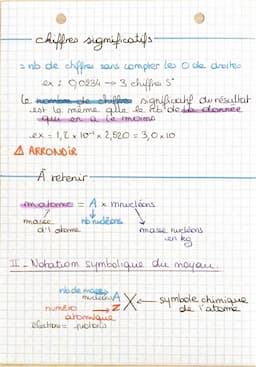 chiffres significatifs
= nb de chiffres sans compter les 0 de droites
ex : 0,0234 → 3 chiffres S°
Le nombre de chiffres significatif du résultat
est le même que le nb de la donnée
qui en a le moins
ex = 1,2 × 10 × 2,520 = 3,0 × 10
⚠ ARRONDIR
À retenir
m atome = A × m nucléons
masse d'1 atome
nb nucléons
masse nucléons en kg
II - Notation symbolique du noyau.
nb de masse
nucléons A
numéro atomique → Z
X ← symbole chimique de l'atome
électrons = protons